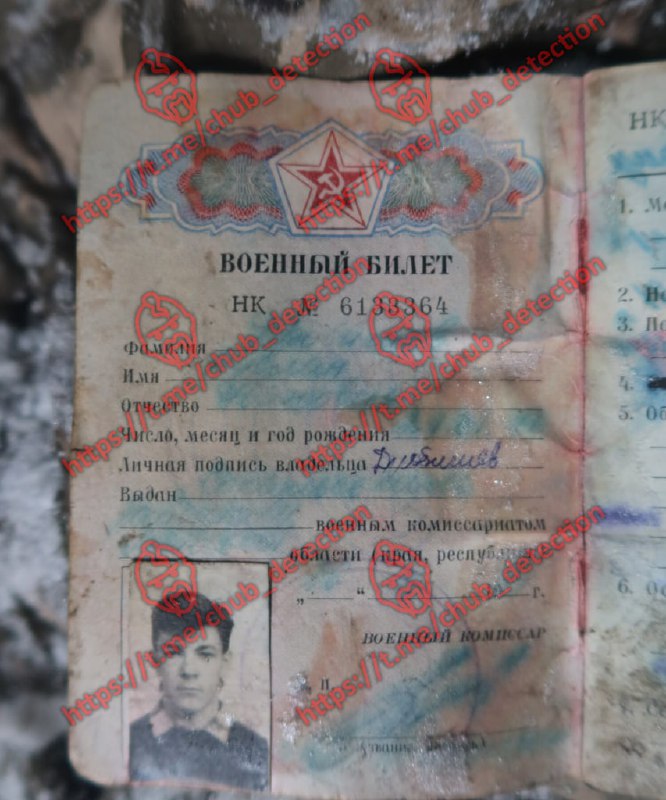 ВОЕННЫЙ БИЛЕТ
НК № 6133364
Фамилия
Имя
Отчество
Число, месяц и год рождения
Личная подпись владельца
Выдан
военным комиссариатом
области (края, республики)
„ “ г.
ВОЕННЫЙ КОМИССАР
НК
1.
2.
3.
4.
5. Об
6. Об
https://t.me/chub_detection
https://t.me/chub_detection
https://t.me/chub_detection
https://t.me/chub_detection
https://t.me/chub_detection
https://t.me/chub_detection